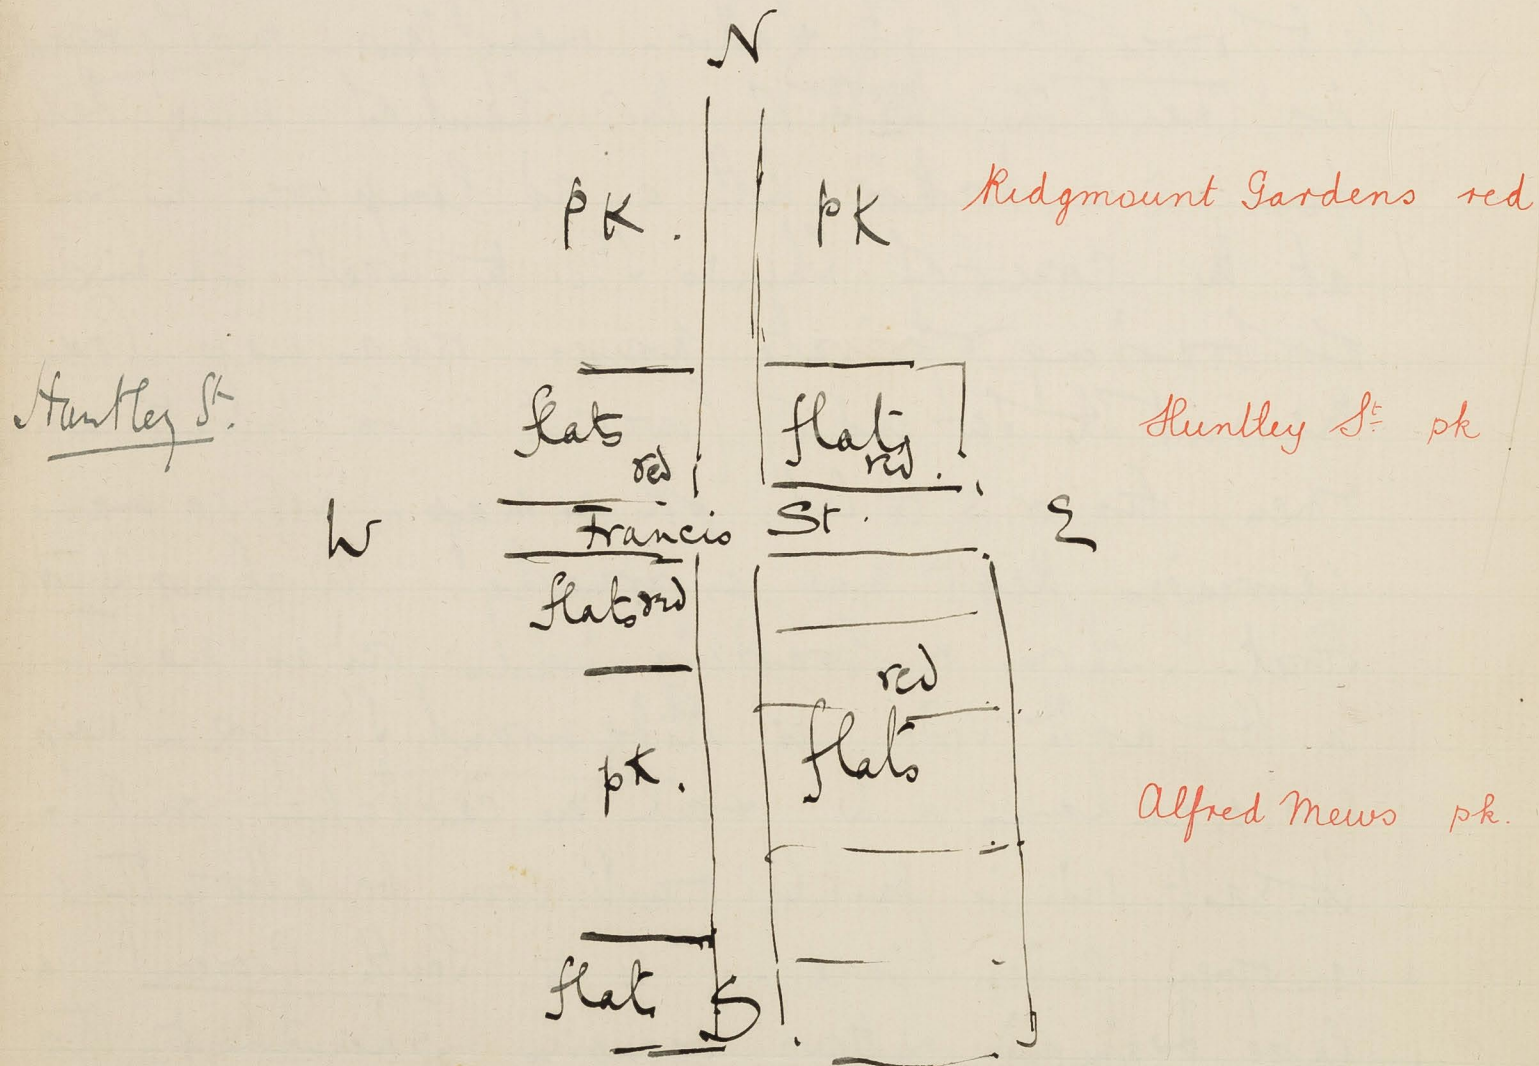 N
pk. pk Ridgmount Gardens red
Huntley St. flats flats Huntley St pk
red red.
W Francis St. E
flats red
red
pk. flats
Alfred Mews pk.
flats S